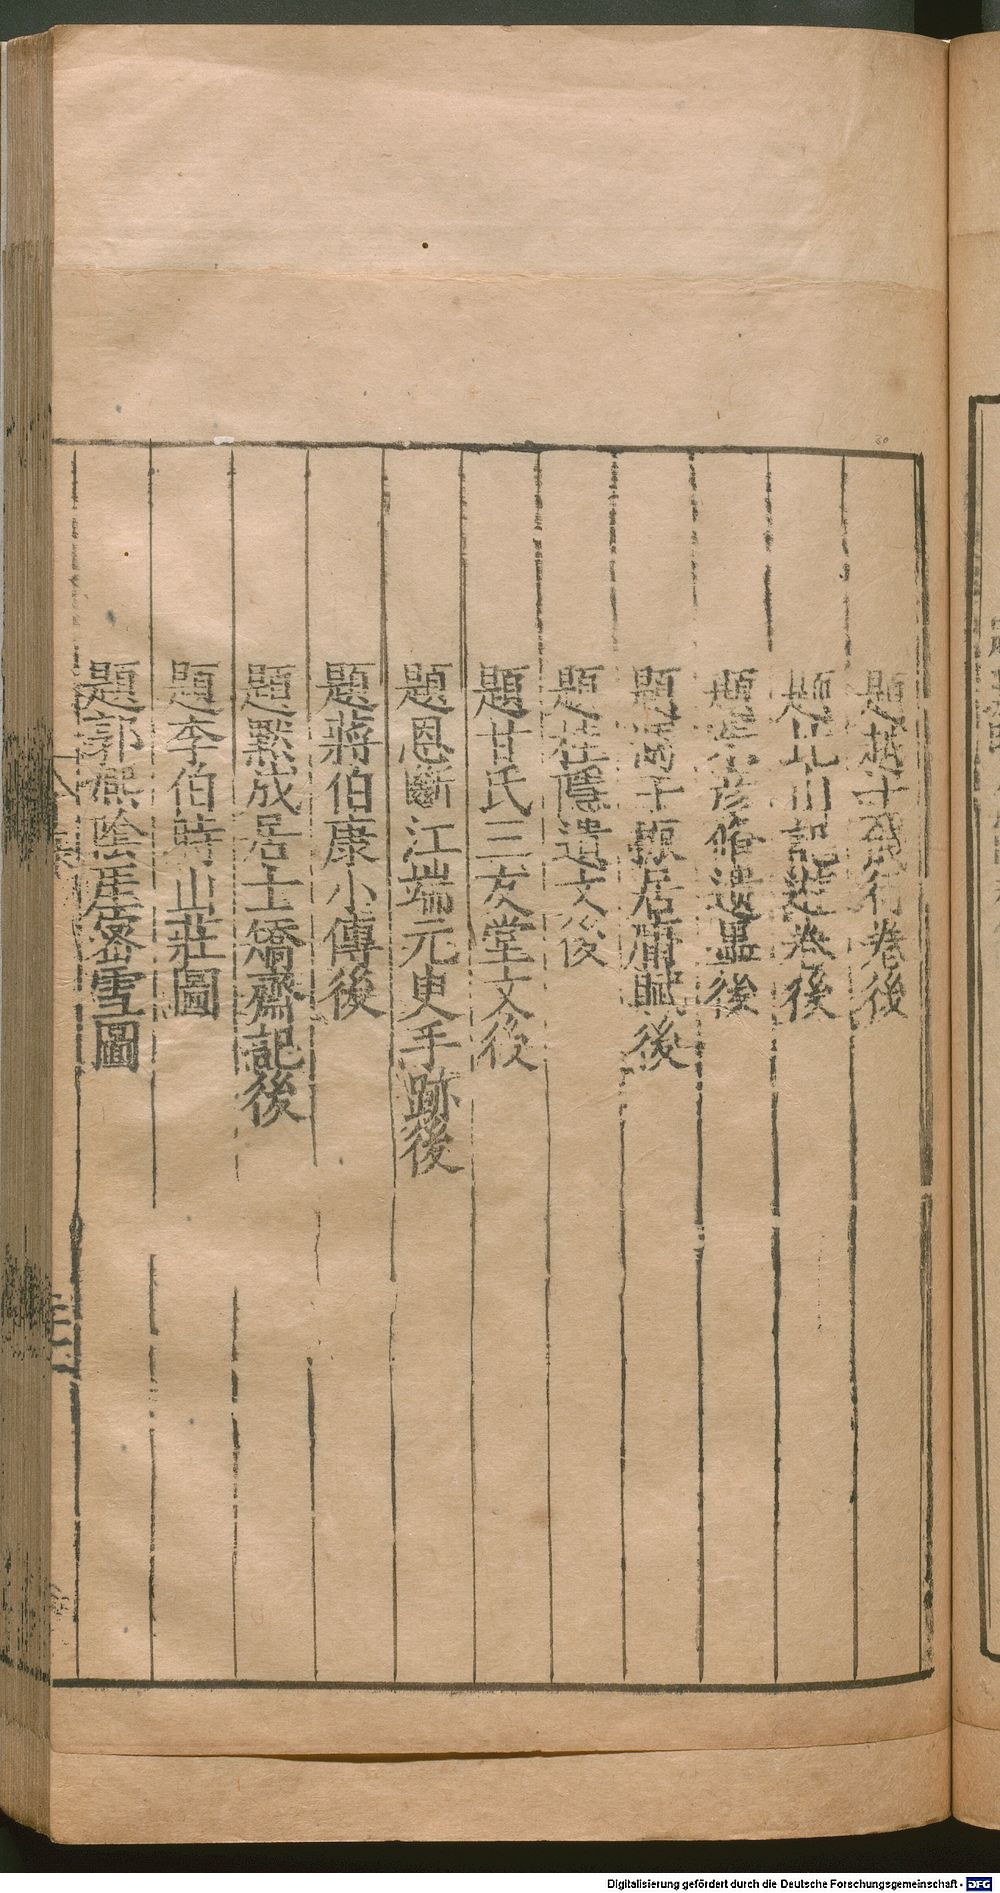 題越士餞行卷後
題北川記遊卷後
題 彦脩遺墨後
題馮子振居庸賦後
題桂隱遺文後
題甘氏三友堂文後
題恩斷江端元叟手跡後
題蔣伯康小傳後
題默成居士矯齋記後
題李伯時山莊圖
題郭熙陰崖密雪圖
Digitalisierung gefördert durch die Deutsche Forschungsgemeinschaft - DFG